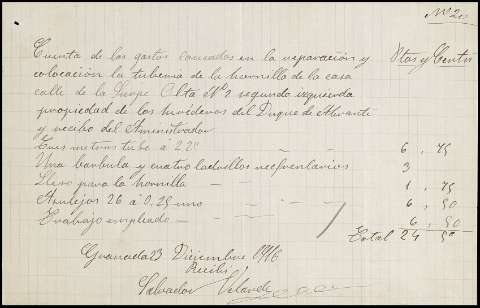 Nº 20
Cuenta de los gastos causados en la reparación y Ptas y Centms
colocación la tuberia de la hornilla de la casa
calle de la Duque Alta Nº 2 segundo izquierda
propiedad de los herederos del Duque de Abrante
y recibo del Aministrador
Tres metros tubo á 225 6,75
Una barbula y cuatro ladrillos recfrentarios 3
Llave para la hornilla 1,75
Asulejos 26 á 0.25 uno 6,50
Trabajo empleado 6,50
Total 24 50
Granada 23 Diciembre 1916
Recibí
Salvador Velarde